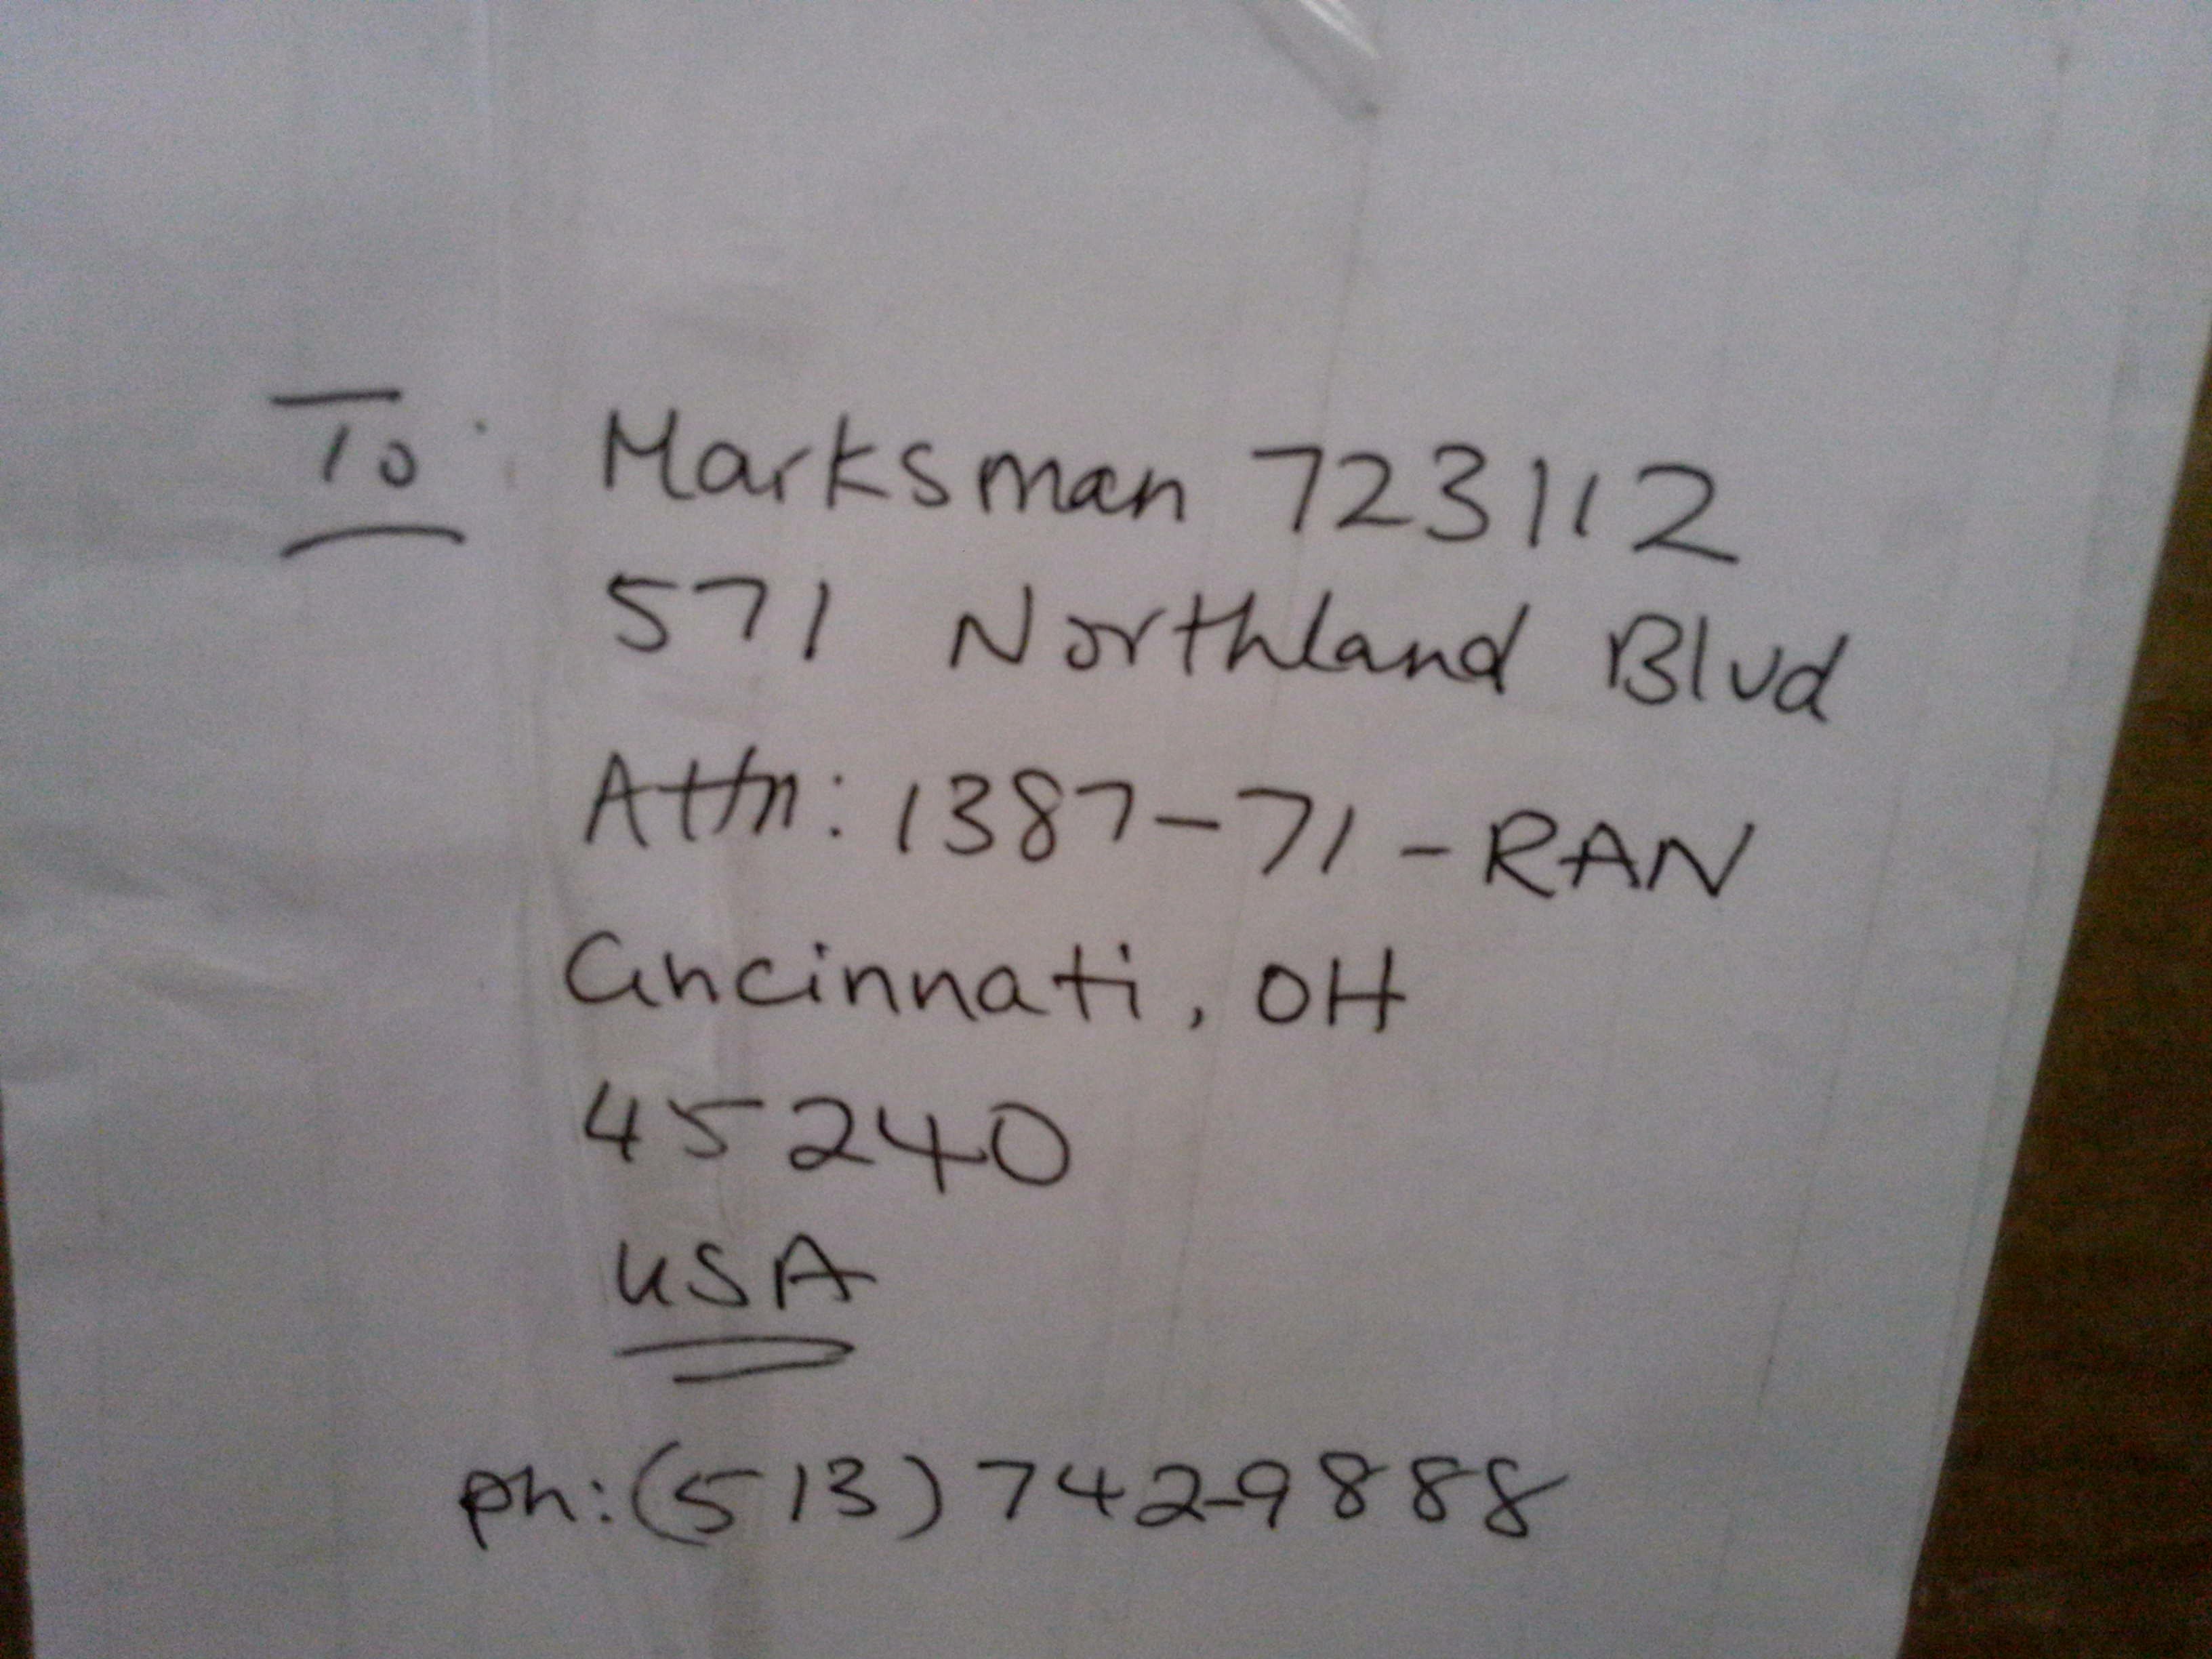 To: Marksman 723112
571 Northland Blvd
Attn: 1387-71-RAN
Cincinnati, OH
45240
USA
ph: (513) 742-9888